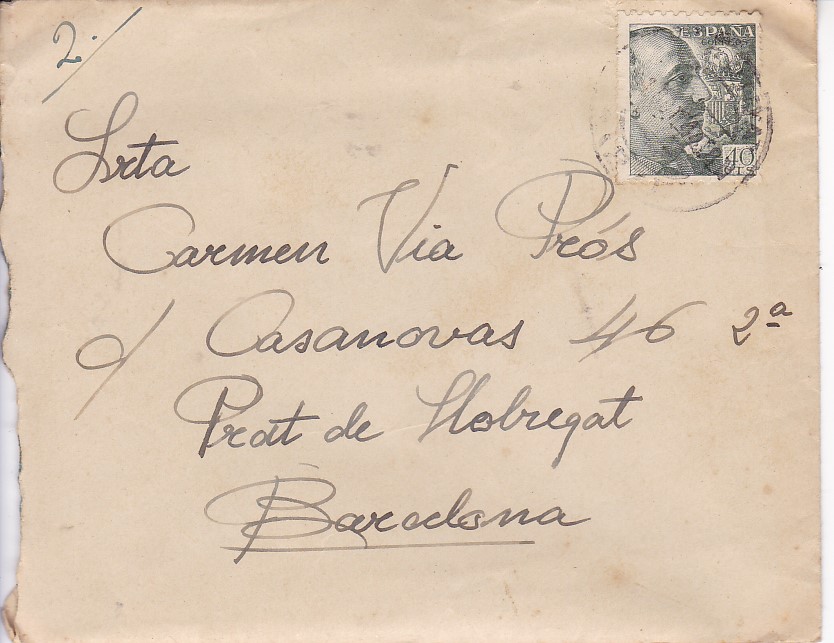 2./
ESPAÑA
CORREOS
40
CTS
Srta
Carmen Via Prós
c/ Casanovas 46 2ª
Prat de Llobregat
Barcelona